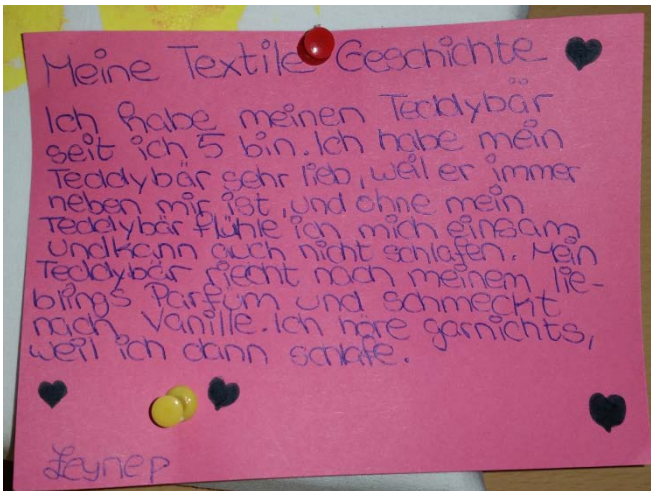 Meine Textile Geschichte
Ich habe meinen Teddybär
seit ich 5 bin. Ich habe mein
Teddybär sehr lieb, weil er immer
neben mir ist, und ohne mein
Teddybär flühle ich mich einsam
und kann auch nicht schlafen. Mein
Teddybär riecht nach meinem lie-
blings Parfum und schmeckt
nach Vanille. Ich höre garnichts,
weil ich dann schlafe.
Zeynep